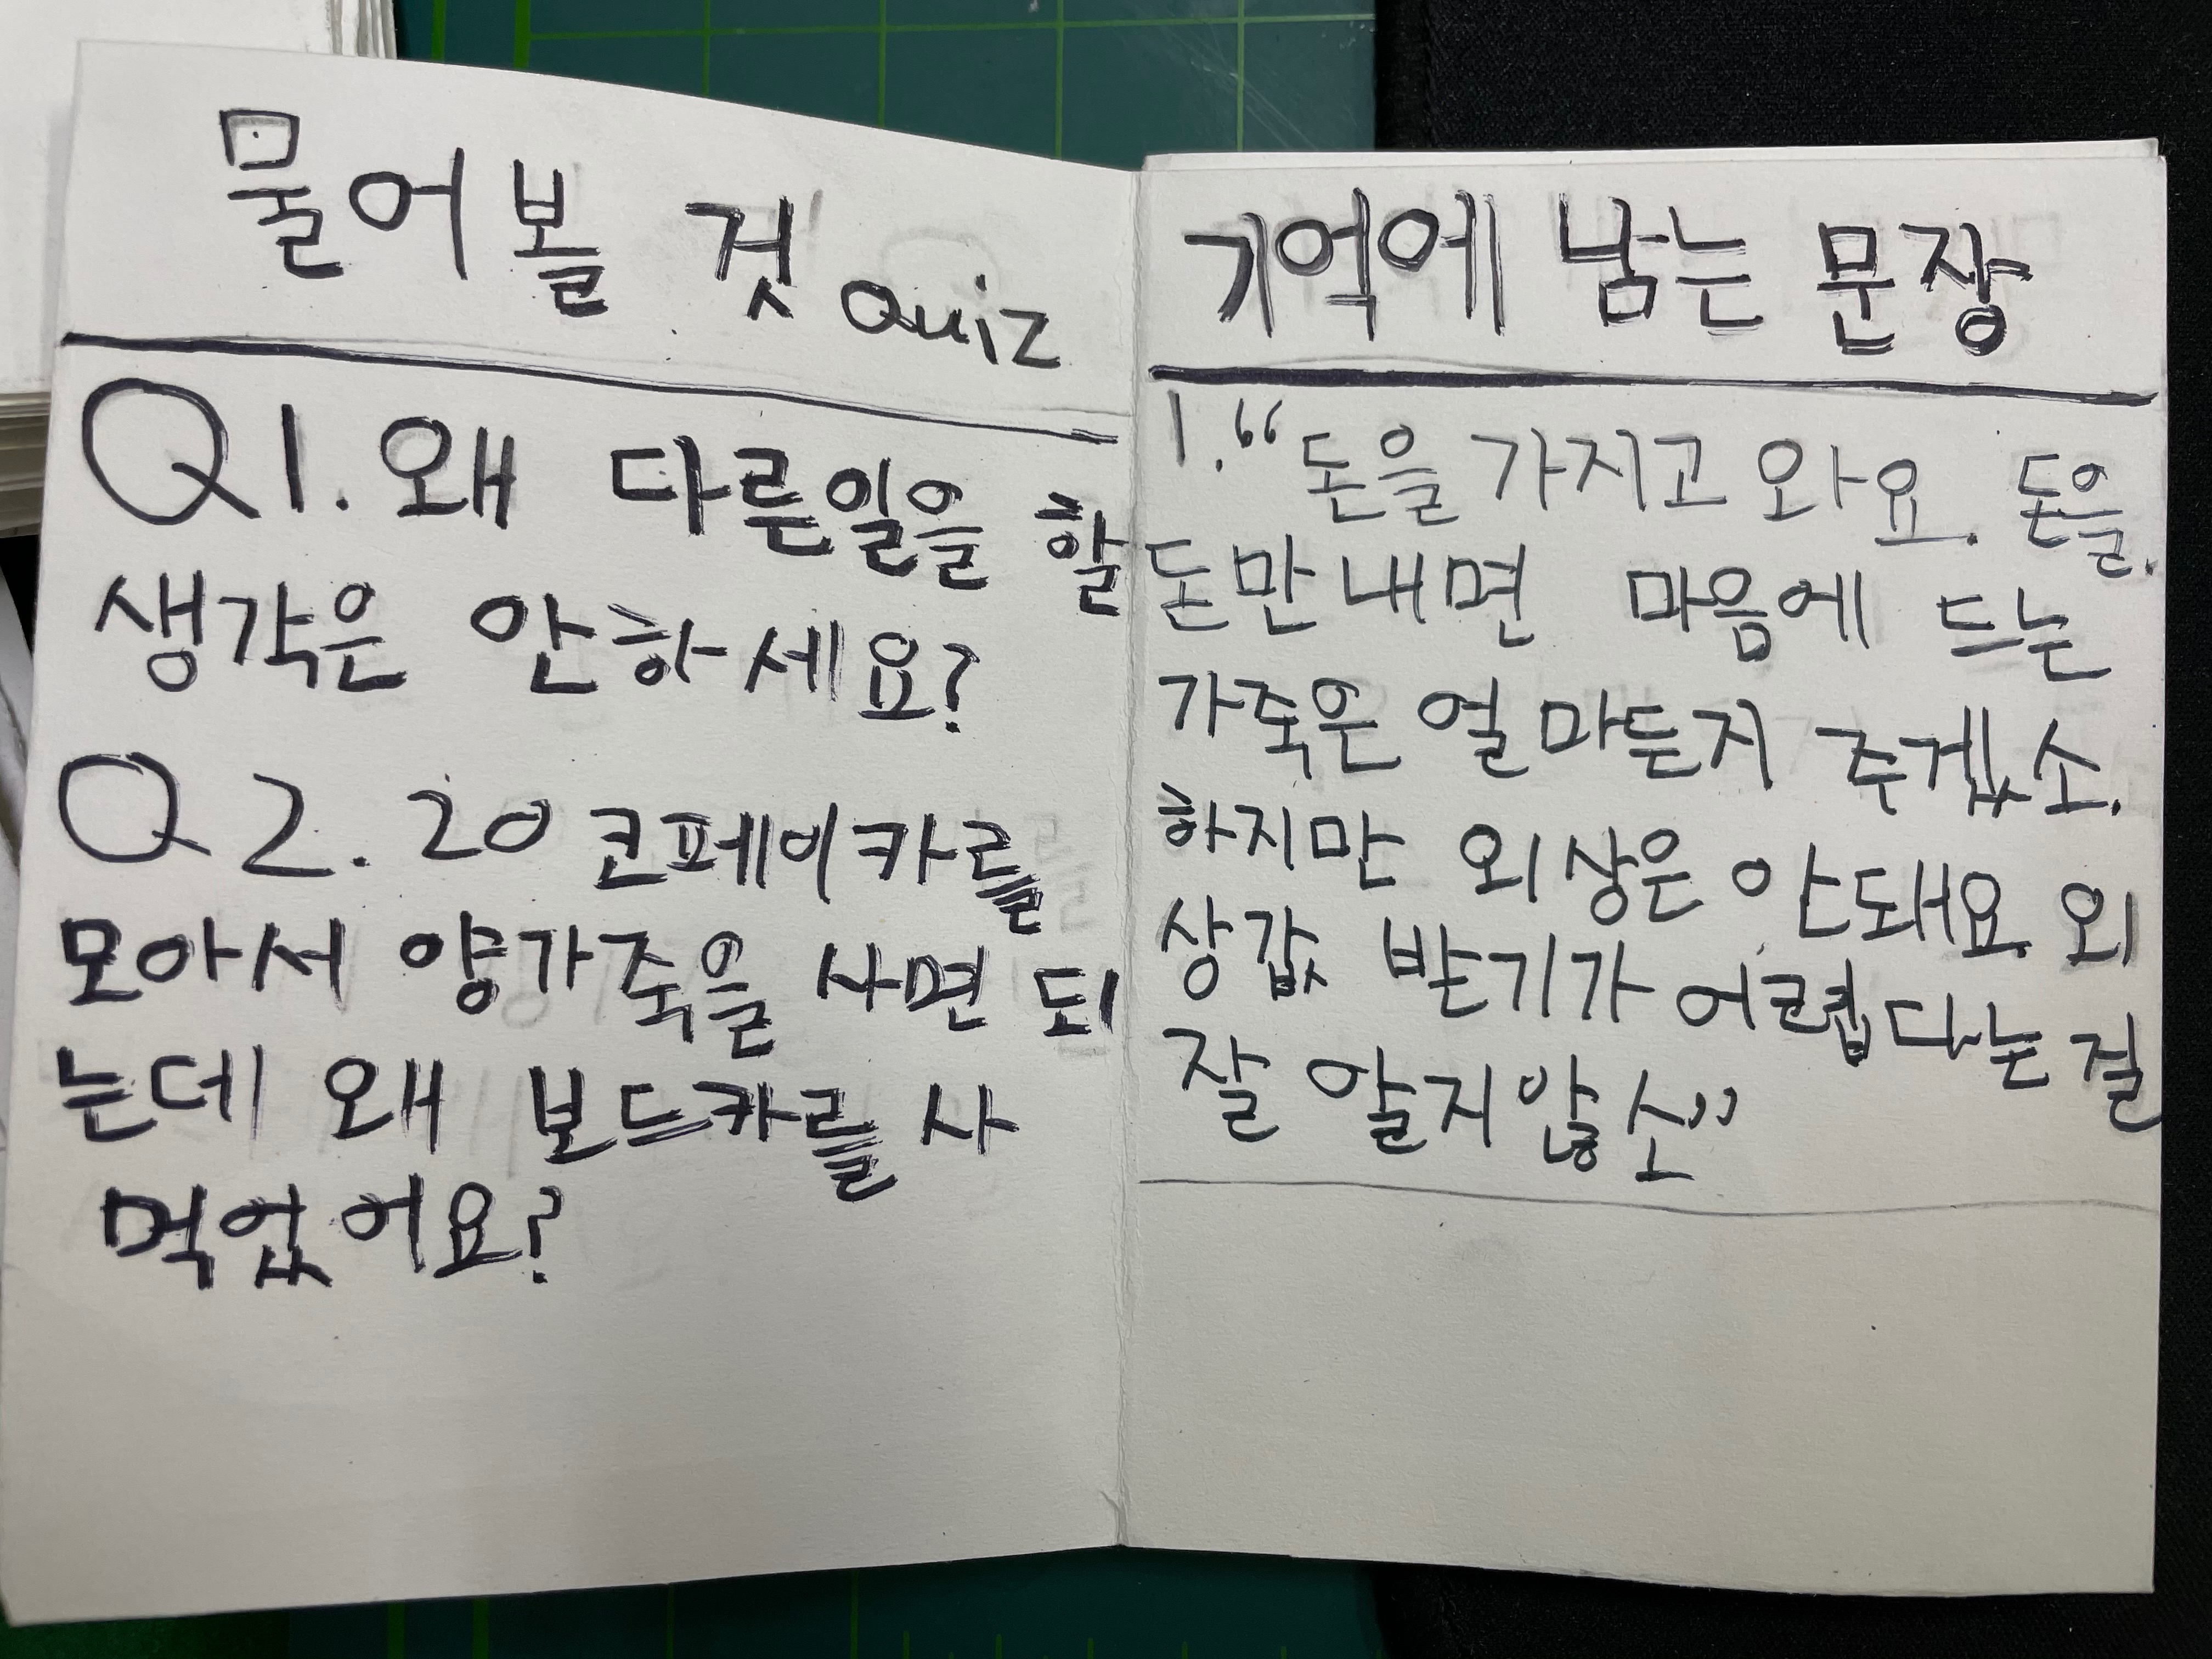 물어볼 것 Quiz
Q1. 왜 다른일을 할
생각은 안하세요?
Q2. 20코페이카를
모아서 양가죽을 사면 되
는데 왜 보드카를 사
먹었어요?
기억에 남는 문장
1. “돈을 가지고 와요. 돈을.
돈만 내면 마음에 드는
가죽은 얼마든지 주겠소.
하지만 외상은 안돼요. 외
상값 받기가 어렵다는 걸
잘 알지않소”